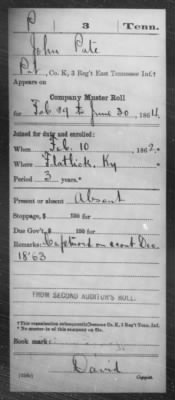 P | 3 | Tenn.
John Pate
Pvt, Co. K, 3 Reg't East Tennessee Inf.†
Appears on
Company Muster Roll
for Feb 29 to June 30, 1864.
Joined for duty and enrolled:
When Feb. 10, 1862.*
Where Flat Lick, Ky
Period 3 years.*
Present or absent Absent
Stoppage, $ 100 for
Due Gov't, $ 100 for
Remarks: Captured on scout Dec
18'63
FROM SECOND AUDITOR'S ROLL.
†This organization subsequently became Co. K, 3 Reg't Tenn. Inf.
Book mark:
David
Copyist.